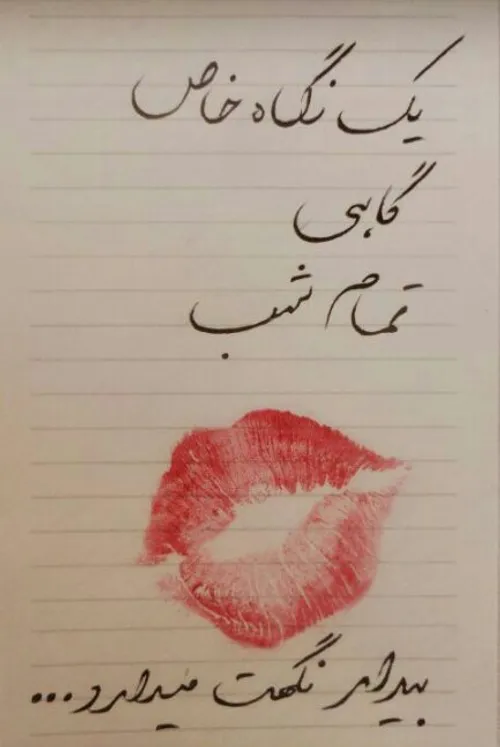 یک نگاه خاص
گاهی
تمام شب
بیدار نگهت میدارد...